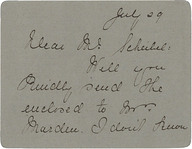 July 29
Dear Mr. Schubel:
Will you
kindly send the
enclosed to Mrs
Marden. I don't know